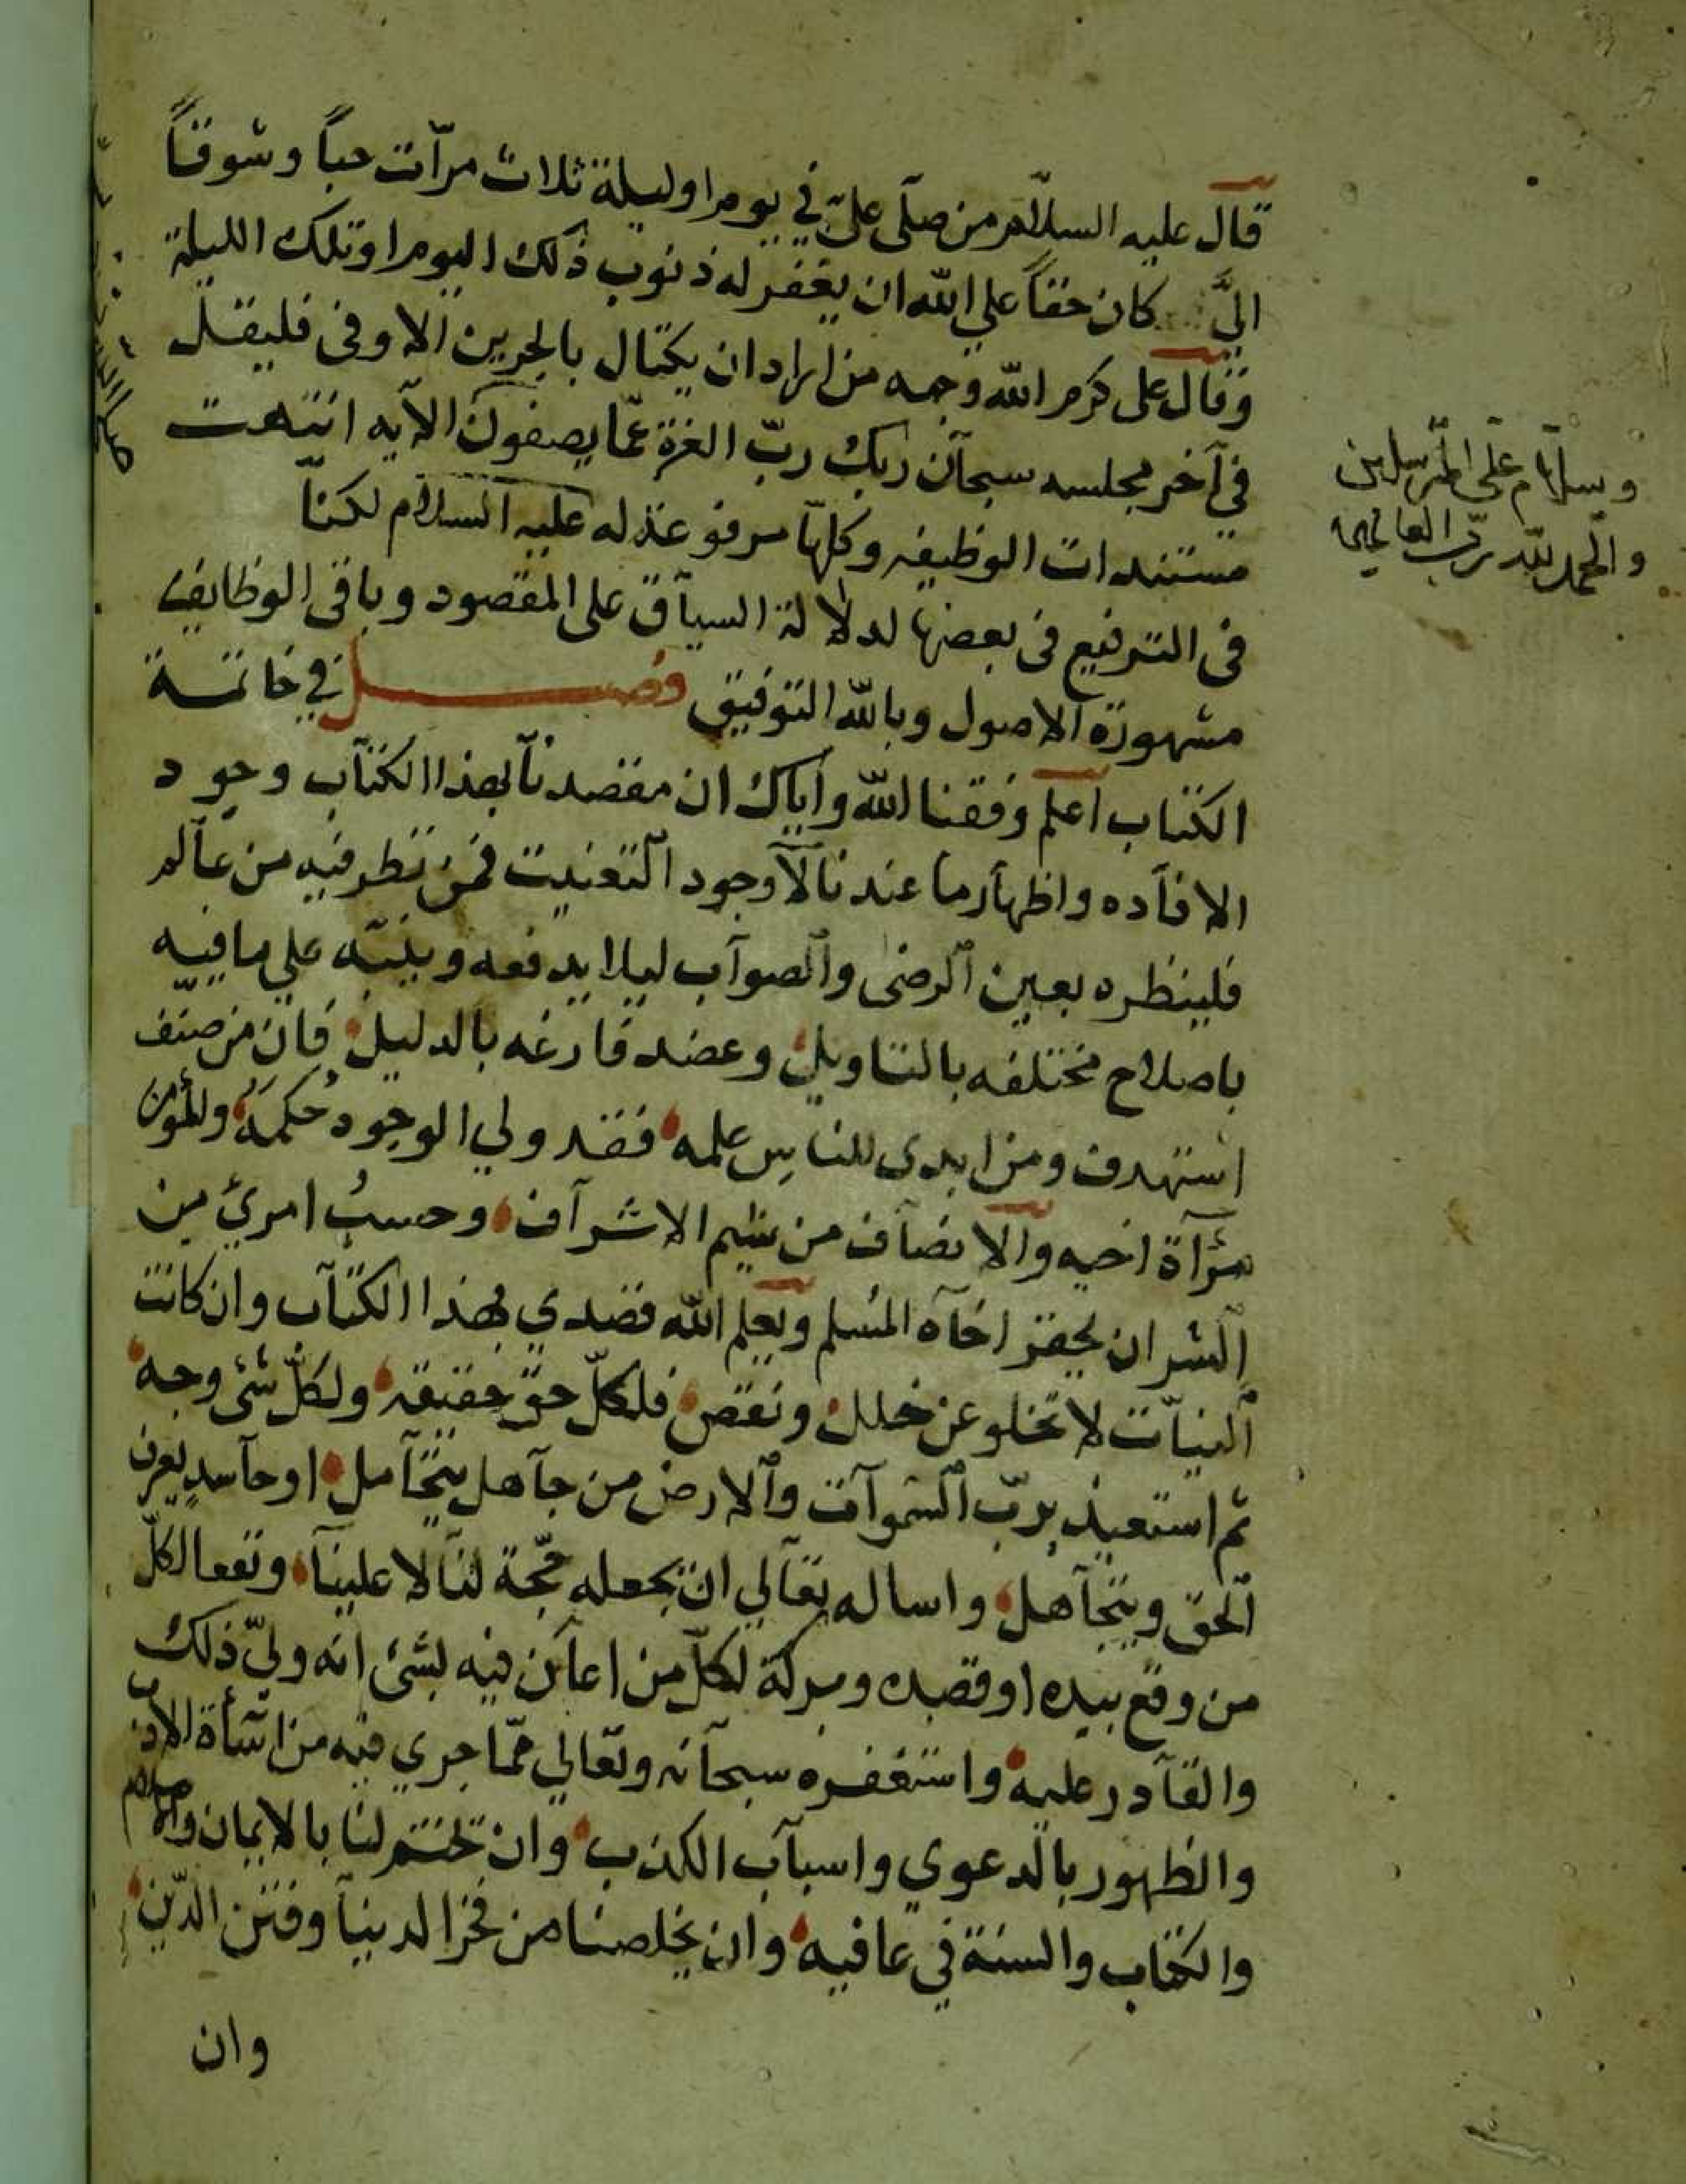 قال عليه السلام من صلى عليّ في يوم او ليلة ثلاث مرّات حباً وشوقاً
اليَّ كان حقاً علي الله ان يغفر له ذنوب ذلك اليوم او تلك الليلة
وقال على كرم الله وجهه من اراد ان يكتال بالجريين الاوفى فليقل
في آخر مجلسه سبحان ربك ربّ العزة عمّا يصفون الآيه انتهت
وسلام على المرسلين
والحمد لله ربّ العالمين
مستندات الوظيفه وكلها مرفوعة له عليه السلام لكنّا
فى الترفيع فى بعضها لدلالة السياق على المقصود وباقى الوظايف
مشهورة الاصول وبالله التوفيق فصل في خاتمة
الكتاب اعلم وفقنا الله واياك ان مقصدنا بهذا الكتاب وجود
الافاده واظهار ما عندنا لا وجود التعنيت فمن نظر فيه من عالم
فلينظره بعين الرضى والصواب ليلا يدفعه وينبّه علي ما فيه
باصلاح مختلفه بالتاويل وعضد فارغه بالدليل فان من صنف
استهدف ومن ابدى للناس علمه فقد ولي الوجود حُكمَهُ والمؤمن
مرآة اخيه والانصاف من شيم الاشراف وحسبُ امرئ من
الشر ان يحقر اخاه المسلم ويعلم الله قصدي بهذا الكتاب وان كانت
النيات لا تخلو عن خلل ونقص فلكلّ حق حقيقه ولكلّ شئ وجه
ثم استعيذ بربّ السموات والارض من جاهل يتحامل او حاسد يعرف
الحق ويتجاهل واساله تعالي ان يجعله حجّة لنا لا علينا ونفعا لكلّ
من وقع بيده او قصده وبركة لكلّ من اعان فيه بشئ انه وليّ ذلك
والقادر عليه واستغفره سبحانه وتعالي ممّا جري فيه من اساة الادب
والظهور بالدعوي واسباب الكذب وان تختم لنا بالايمان والاسلام
والكتاب والسنة في عافيه وان يخلصنا من فخر الدنيا وفتن الدّين
وان